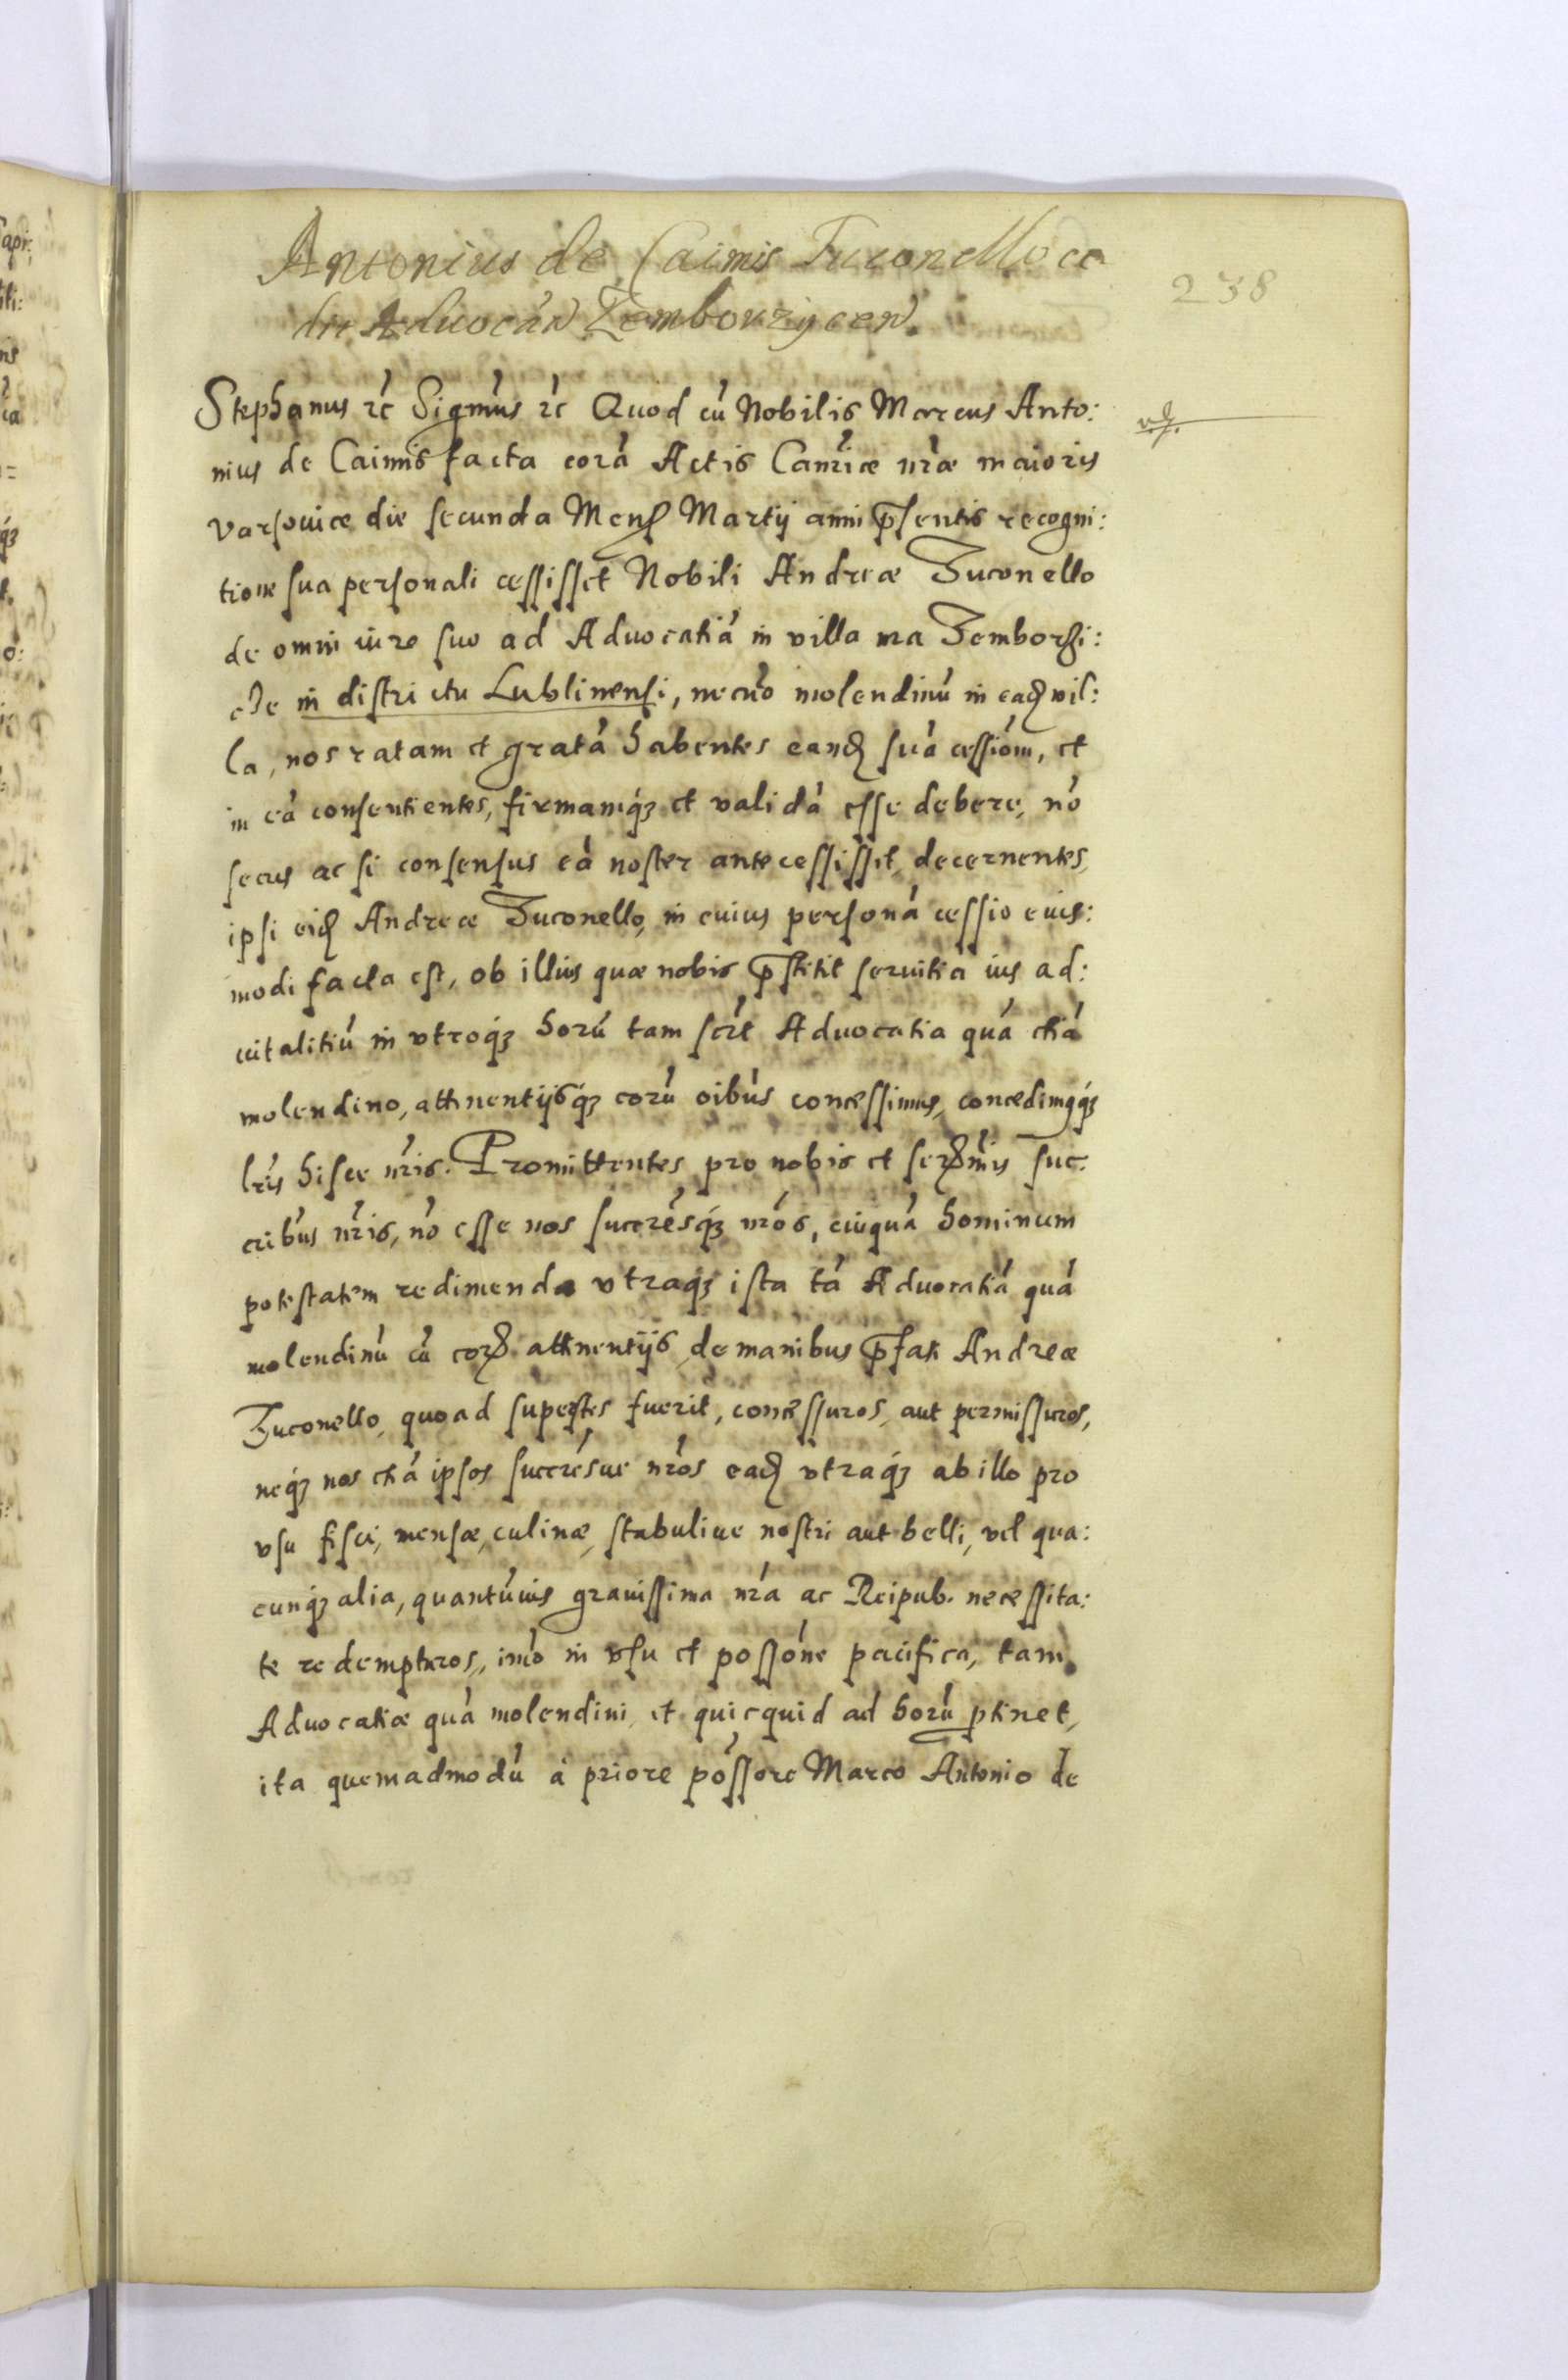 Antonius de Caimis Tuconello ce
dit Aduocãn Zemborzycen̄.
238
Stephanus rc̃ Sigm̃us rc̃ Quod cũ Nobilis Marcus Anto:
nius de Caimis facta corã Actis Canr̃iæ nr̃æ maioris
varsouiæ die secunda Mens̄ Martij anni p̄sentis recogni:
tione sua personali cessisset Nobili Andreæ Tuconello
de omni iure suo ad Aduocatiã in villa nr̃a Zemborzi:
cze in districtu Lublinensi, necnõ molendinũ in ead̄ vil:
la, nos ratam et gratã habentes eand̄ suã cessiõm, et
in eã consentientes, firmamq̃ʒ et validã esse debere, nõ
secus ac si consensus eã noster antecessissit, decernentes,
ipsi eid̄ Andreæ Tuconello, in cuius personã cessio euis:
modi facta est, ob illius quæ nobis p̄stitit seruitia ius ad:
uitalitiũ in vtroq̃ʒ horũ tam scr̃t Aduocatia quã etiã
molendino, attinentijsq̃ʒ eorũ oibũs concessimus, concedimq̃ʒ
lr̃is hisce nr̃is. Promittentes pro nobis et ser̄m̃is suc:
cribũs nr̃is, nõ esse nos succrẽsq̃ʒ nrõs, cuiquã hominum
potestatem redimenda vtraq̃ʒ ista tã Aduocatiã quã
molendinũ cũ eor̄ attinentijs de manibus p̄fati Andreæ
Tuconello, quoad superstes fuerit, concessuros, aut permissuros,
neq̃ʒ nos etiã ipsos succrẽsue nrõs ead̄ vtraq̃ʒ ab illo pro
vsu fisci, mensæ, culinæ, stabuliue nostri aut belli, vel qua:
cunq̃ʒ alia, quantũuis grauissima nr̃a ac Reipub. necessita:
te redempturos, imõ in vsu et possõne pacifica, tam
Aduocatiæ quã molendini, et quicquid ad horũ ptinet,
ita quemadmodũ à priore põssore Marco Antonio de